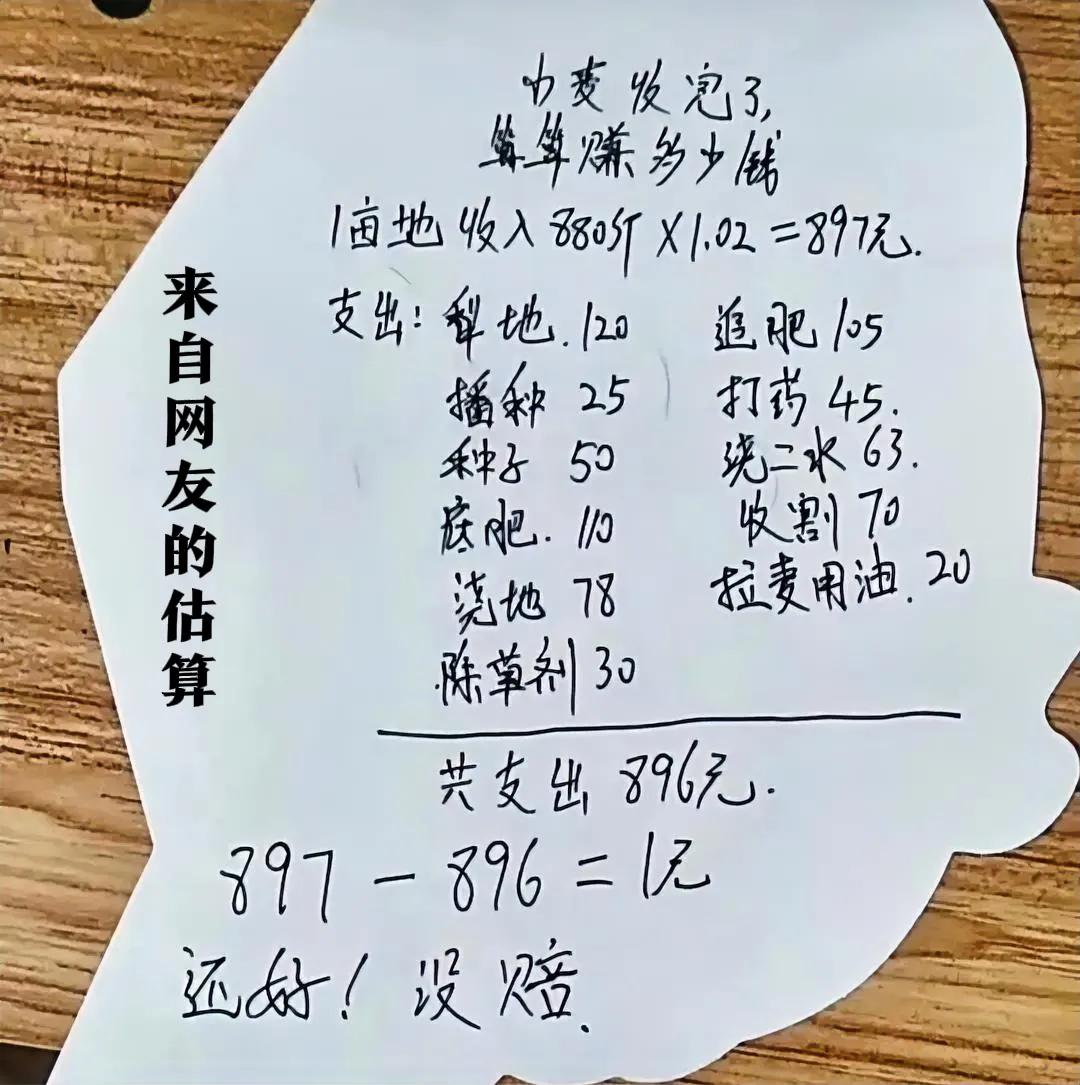 小麦收完了,
算算赚多少钱
1亩地收入880斤×1.02=897元.
支出: 犁地.120 追肥105
播种 25 打药45.
种子 50 浇二水63.
底肥.110 收割70
浇地 78 拉麦用油.20
除草剂30
共支出896元.
897-896=1元
还好!没赔.
来自网友的估算